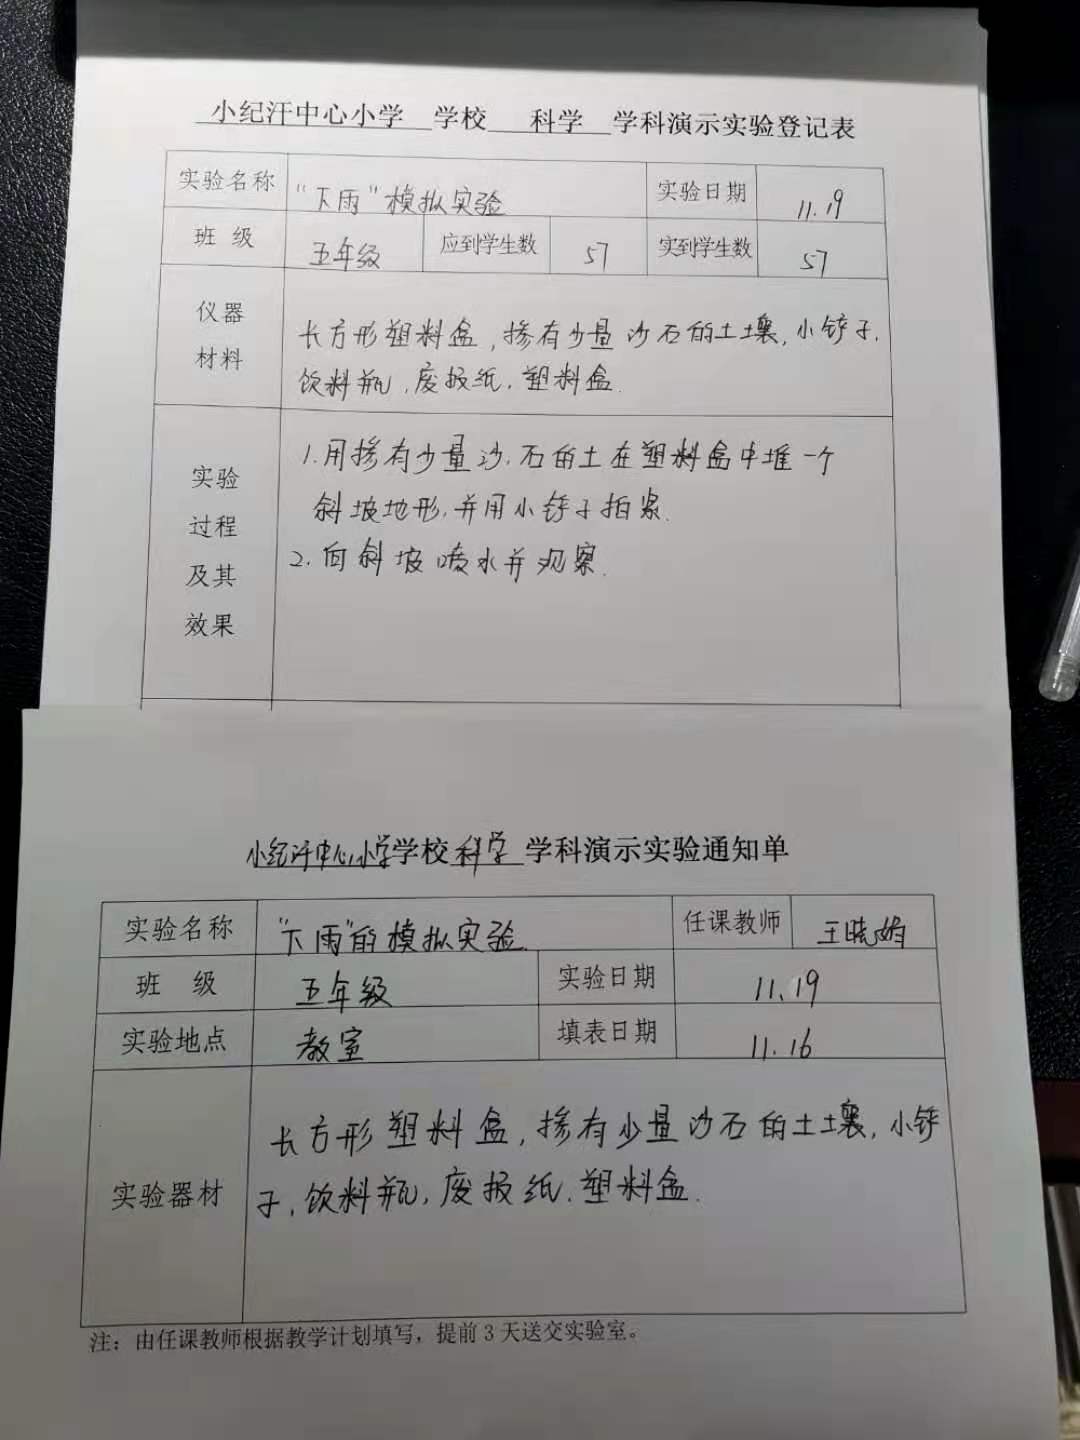 小纪汗中心小学 学校 科学 学科演示实验登记表
实验名称 “下雨”模拟实验 实验日期 11.19
班 级 五年级 应到学生数 57 实到学生数 57
仪器
材料
长方形塑料盒,掺有少量沙石的土壤,小铲子,
饮料瓶,废报纸,塑料盒.
实验
过程
及其
效果
1.用掺有少量沙、石的土在塑料盒中堆一个
斜坡地形,并用小铲子拍紧.
2.向斜坡喷水并观察.
小纪汗中心小学学校科学 学科演示实验通知单
实验名称 “下雨”的模拟实验 任课教师 王晓娟
班 级 五年级 实验日期 11.19
实验地点 教室 填表日期 11.16
实验器材
长方形塑料盒,掺有少量沙石的土壤,小铲
子,饮料瓶,废报纸.塑料盒.
注：由任课教师根据教学计划填写，提前3天送交实验室。